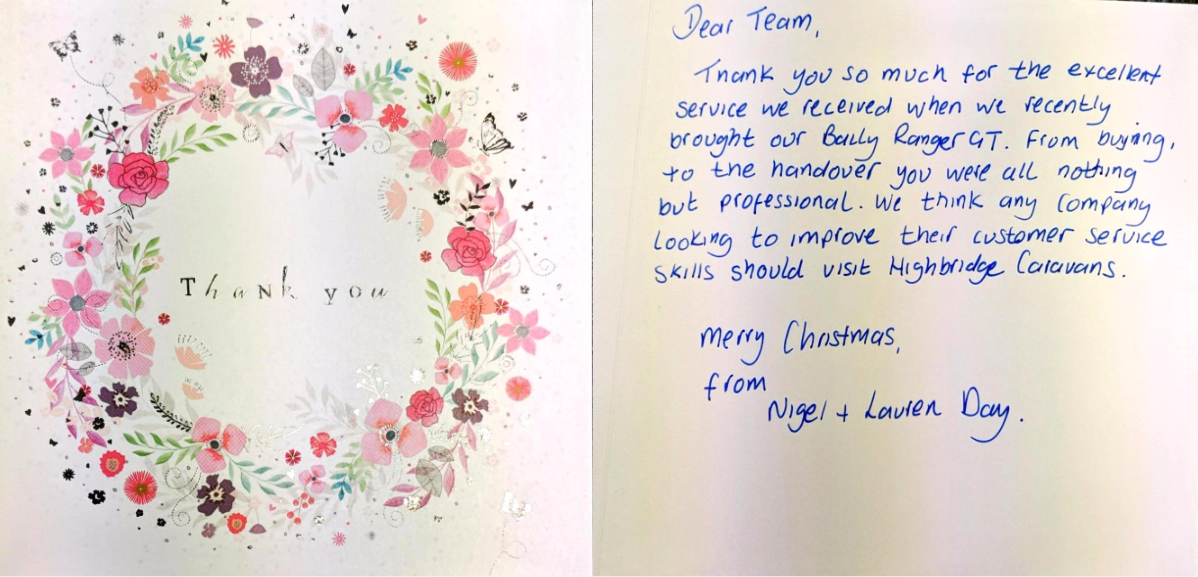 Thank you
Dear Team,
Thank you so much for the excellent
service we received when we recently
brought our Bailly Ranger GT. From buying,
to the handover you were all nothing
but professional. We think any company
looking to improve their customer service
skills should visit Highbridge Caravans.
Merry Christmas,
from
Nigel + Lauren Day.